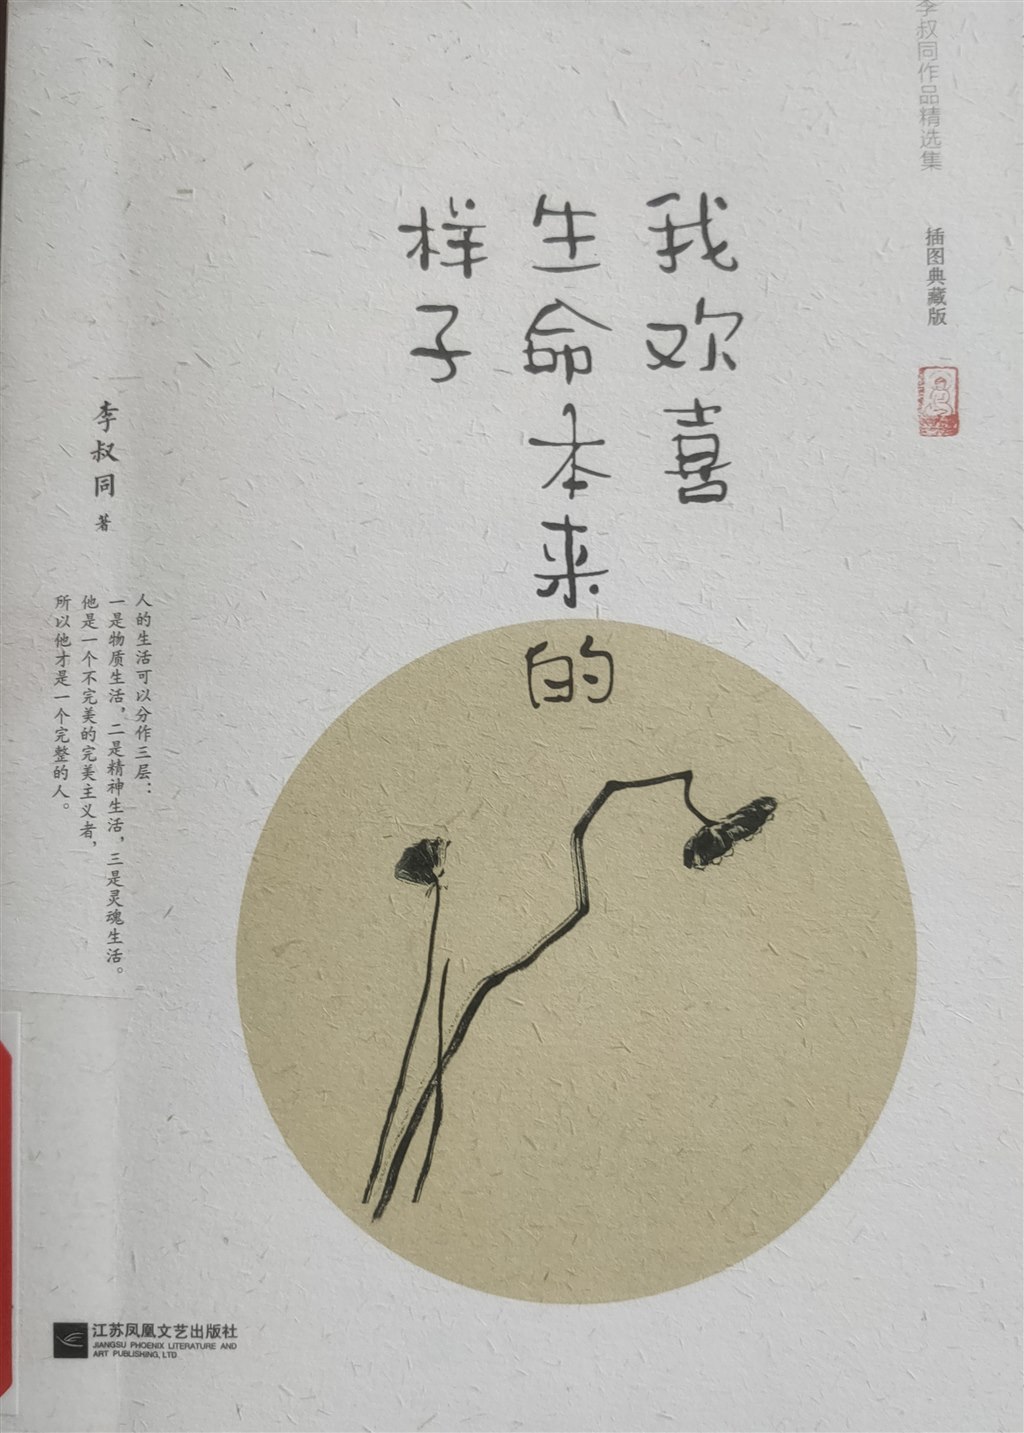 李叔同作品精选集
插图典藏版
我欢喜
生命本来的
样子
李叔同 著
人的生活可以分作三层：
一是物质生活，二是精神生活，三是灵魂生活。
他是一个不完美的完美主义者，
所以他才是一个完整的人。
江苏凤凰文艺出版社
JIANGSU PHOENIX LITERATURE AND
ART PUBLISHING, LTD